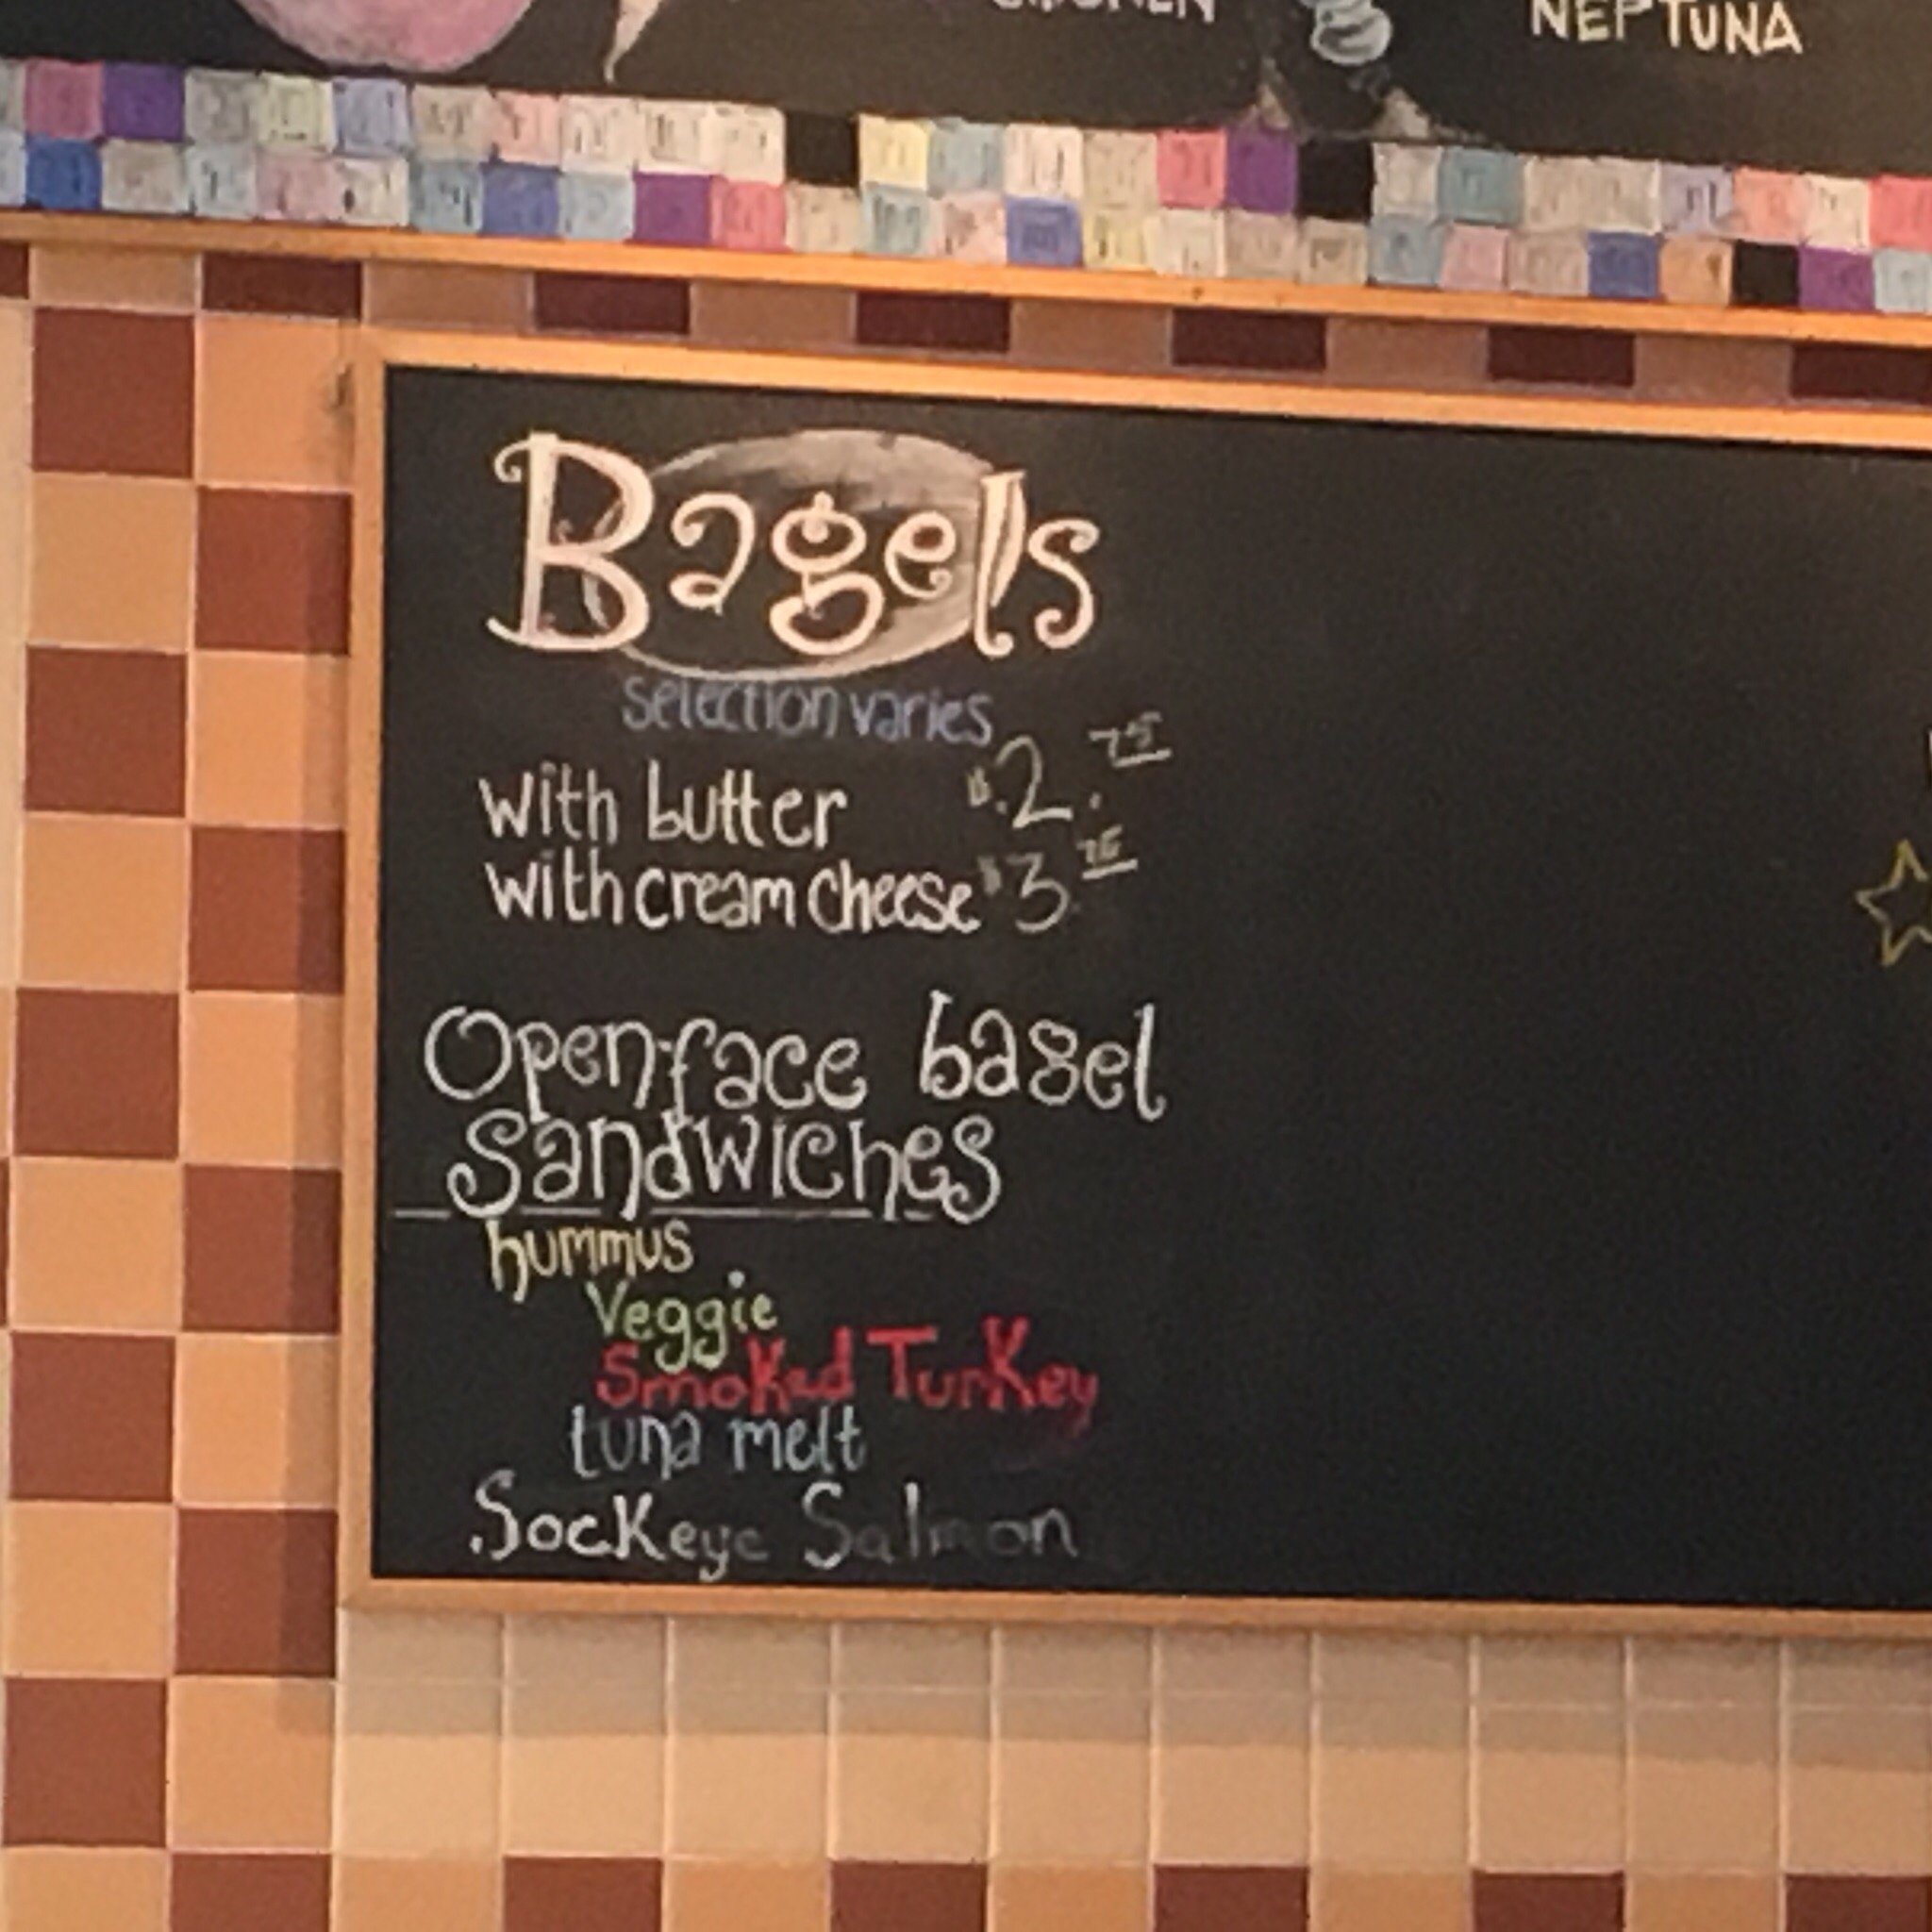 NEPTUNA
Bagels
selection varies
with butter $2.75
with cream cheese $3.75
Open-face bagel
Sandwiches
hummus
Veggie
Smoked Turkey
tuna melt
Sockeye Salmon